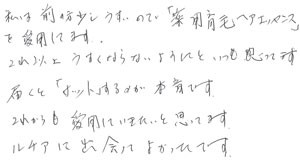 私は前が少しうすいので「薬用育毛ヘアエッセンス」
を愛用してます。
これ以上うすくならないようにといつも思ってます
届くと「ホット」するのが本音です。
これからも愛用していきたいと思ってます
ルチアに出会てよかったです。